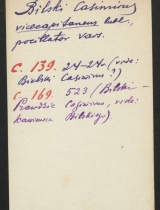 Bilski Casimirus
vicecapitaneus bel.,
pocillator vars.
C. 139. 24–24v (vide:
Bielski Casimirus?)
C. 169. 523 (Bilski –
Prawdzic Casimirus, vide:
Bilskiego).